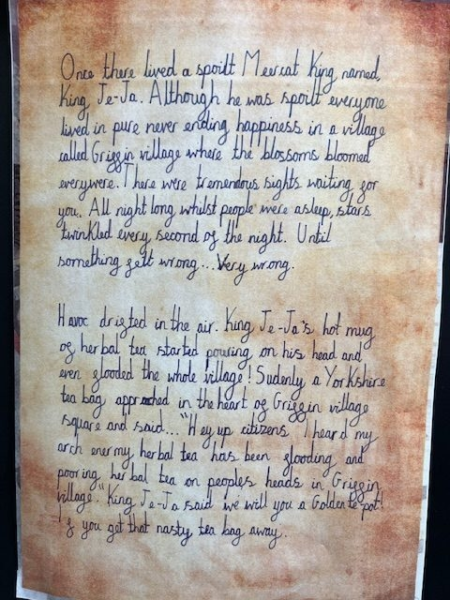 Once there lived a spoilt Meercat King named,
King Je-Ja. Although he was spoilt everyone
lived in pure never ending happiness in a village
called Griffin village where the blossoms bloomed
everywere. There were tremendous sights waiting for
you. All night long whilst people were asleep, stars
twinkled every second of the night. Until
something felt wrong... Very wrong.
Havoc drifted in the air. King Je-Ja's hot mug
of herbal tea started pouring on his head and
even flooded the whole village! Sudenly a Yorkshire
tea bag in the heart of Griffin village
square and said... "Hey up citizens" I heard my
arch enermy herbal tea has been flooding and
pooring herbal tea on peoples heads in Griffin
village." King Je-Ja said we will you a Golden
If you get that nasty tea bag away.